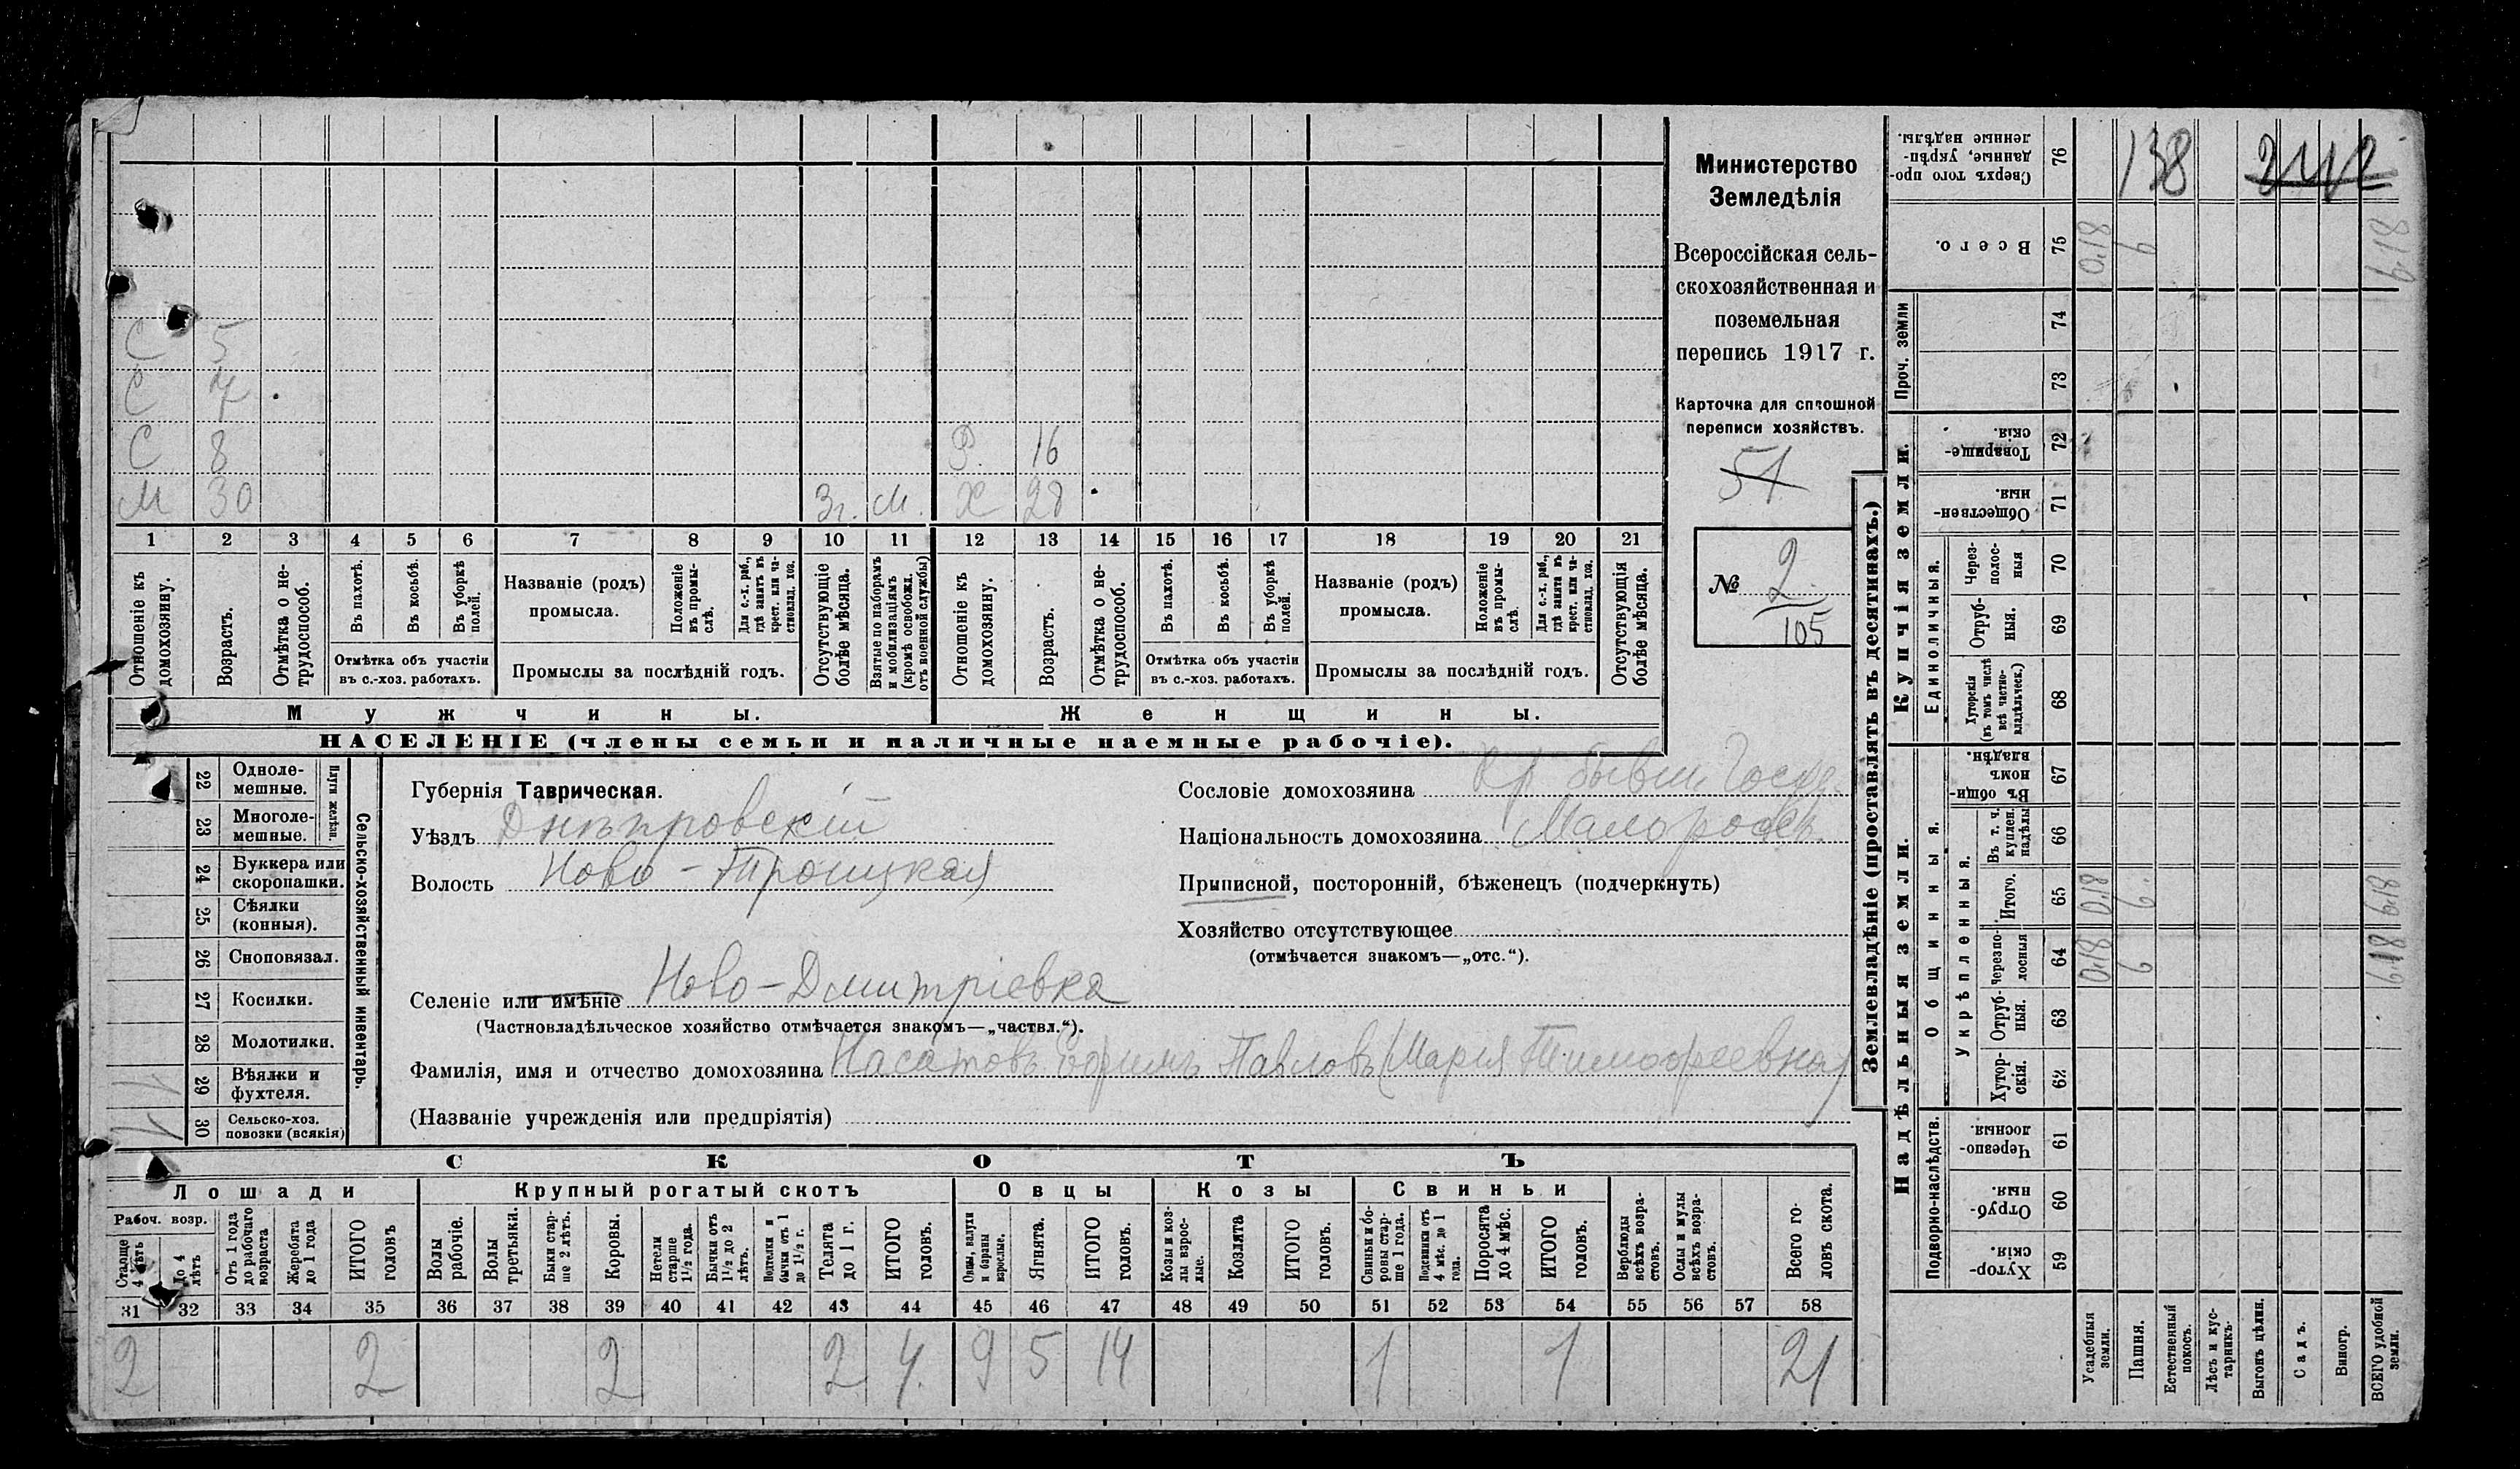 Министерство
Земледѣлія
Всероссійская сель-
скохозяйственная и
поземельная
перепись 1917 г.
Карточка для сплошной
переписи хозяйствъ.
51
№ 2
105
С 5
С 7
С 8 Р. 16
М 30 3г. М. Х 28
1 2 3 4 5 6 7 8 9 10 11 12 13 14 15 16 17 18 19 20 21
Отношеніе къ домохозяину.
Возрастъ.
Отмѣтка о не-трудоспособ.
Въ пахотѣ.
Въ косьбѣ.
Въ уборкѣ полей.
Отмѣтка объ участіи
въ с.-хоз. работахъ.
Названіе (родъ)
промысла.
Положеніе въ промы-слѣ.
Для с.-х. раб., гдѣ занятъ въ крест. или ча-стновлад. хоз.
Промыслы за послѣдній годъ.
Отсутствующіе болѣе мѣсяца.
Взятые по наборамъ и мобилизаціямъ (кромѣ освобожд. отъ военной службы)
Отношеніе къ домохозяину.
Возрастъ.
Отмѣтка о не-трудоспособ.
Въ пахотѣ.
Въ косьбѣ.
Въ уборкѣ полей.
Отмѣтка объ участіи
въ с.-хоз. работахъ.
Названіе (родъ)
промысла.
Положеніе въ промы-слѣ.
Для с.-х. раб., гдѣ занята въ крест. или ча-стновлад. хоз.
Промыслы за послѣдній годъ.
Отсутствующія болѣе мѣсяца.
Мужчины. Женщины.
НАСЕЛЕНІЕ (члены семьи и наличные наемные рабочіе).
22 Одноле-мешные.
23 Многоле-мешные.
Плуги желѣзн.
24 Буккера или скоропашки.
25 Сѣялки (конныя).
26 Сноповязал.
27 Косилки.
28 Молотилки.
1 29 Вѣялки и фухтеля.
1 30 Сельско-хоз. повозки (всякія)
Сельско-хозяйственный инвентарь.
Губернія Таврическая.
Уѣздъ Днѣпровскій
Волость Ново-Троицкая
Сословіе домохозяина Кр. бывш. Госуд.
Національность домохозяина Малоросс.
Приписной, посторонній, бѣженецъ (подчеркнуть)
Хозяйство отсутствующее
(отмѣчается знакомъ—„отс.“).
Селеніе или имѣніе Ново-Дмитріевка
(Частновладѣльческое хозяйство отмѣчается знакомъ—„частвл.“).
Фамилія, имя и отчество домохозяина Павловъ (Мария Тимофеевна)
(Названіе учрежденія или предпріятія)
СКОТЪ
Лошади Крупный рогатый скотъ Овцы Козы Свиньи
Рабоч. возр.
Старше 4 лѣтъ
До 4 лѣтъ
Отъ 1 года до рабочаго возраста
Жеребята до 1 года
ИТОГО головъ
Волы рабочіе.
Волы третьяки.
Быки стар-ше 2 лѣтъ.
Коровы.
Нетели старше 1½ года.
Бычки отъ 1½ до 2 лѣтъ.
Подтелки и бычки отъ 1 до 1½ г.
Телята до 1 г.
ИТОГО головъ.
Овцы, валухи и бараны взрослые.
Ягнята.
ИТОГО головъ.
Козы и коз-лы взрос-лые.
Козлята
ИТОГО головъ.
Свиньи и бо-ровы стар-ше 1 года.
Подсвинки отъ 4 мѣс. до 1 года.
Поросята до 4 мѣс.
ИТОГО головъ.
Верблюды всѣхъ возра-стовъ.
Ослы и мулы всѣхъ возра-стовъ.
Всего го-ловъ скота.
31 32 33 34 35 36 37 38 39 40 41 42 43 44 45 46 47 48 49 50 51 52 53 54 55 56 57 58
2 2 2 2 4. 9 5 14 1 1 21
Землевладѣніе (проставлять въ десятинахъ.)
Купчія земли.
Надѣльныя земли.
Единоличныя.
Общинныя.
Укрѣпленныя.
Подворно-наслѣдств.
Проч. земли
Сверхъ того про-данные, укрѣп-ленные надѣлы. 76 138 2112
Всего. 75 0,18 6 6.18
74
73
Товарище-скія. 72
Обществен-ныя. 71
Черезполос-ныя 70
Отруб-ныя. 69
Хуторскія (въ томъ числѣ всѣ частно-владѣльческ.) 68
Въ общин-номъ владѣн. 67
Въ т. ч. куплен. надѣлы 66
Итого. 65 0,18 6. 6,18
Черезпо-лосныя 64 0,18 6 6.18
Отруб-ныя. 63
Хутор-скія. 62
Черезпо-лосныя 61
Отруб-ныя. 60
Хутор-скія. 59
Усадебныя земли.
Пашня.
Естественный покосъ.
Лѣсъ и кус-тарникъ.
Выгонъ цѣлин.
Садъ.
Виногр.
ВСЕГО удобной земли.